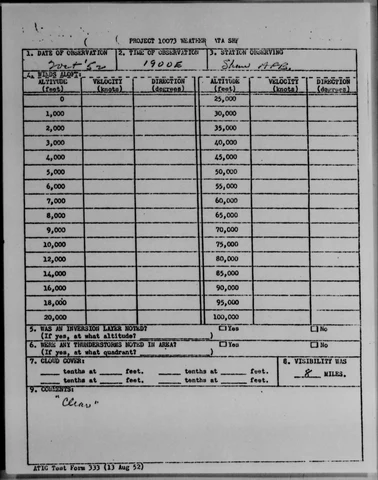 PROJECT 10073 WEATHER DATA SHEET
1. DATE OF OBSERVATION 2. TIME OF OBSERVATION 3. STATION OBSERVING
Oct '52 1900E Shaw AFB
4. WINDS ALOFT:
ALTITUDE (feet) VELOCITY (knots) DIRECTION (degrees) ALTITUDE (feet) VELOCITY (knots) DIRECTION (degrees)
0 25,000
1,000 30,000
2,000 35,000
3,000 40,000
4,000 45,000
5,000 50,000
6,000 55,000
7,000 60,000
8,000 65,000
9,000 70,000
10,000 75,000
12,000 80,000
14,000 85,000
16,000 90,000
18,000 95,000
20,000 100,000
5. WAS AN INVERSION LAYER NOTED? Yes No
(If yes, at what altitude? )
6. WERE ANY THUNDERSTORMS NOTED IN AREA? Yes No
(If yes, at what quadrant? )
7. CLOUD COVER: 8. VISIBILITY WAS
tenths at feet. tenths at feet. 8 MILES.
tenths at feet. tenths at feet.
9. COMMENTS:
"Clear"
ATIC Test Form 333 (13 Aug 52)